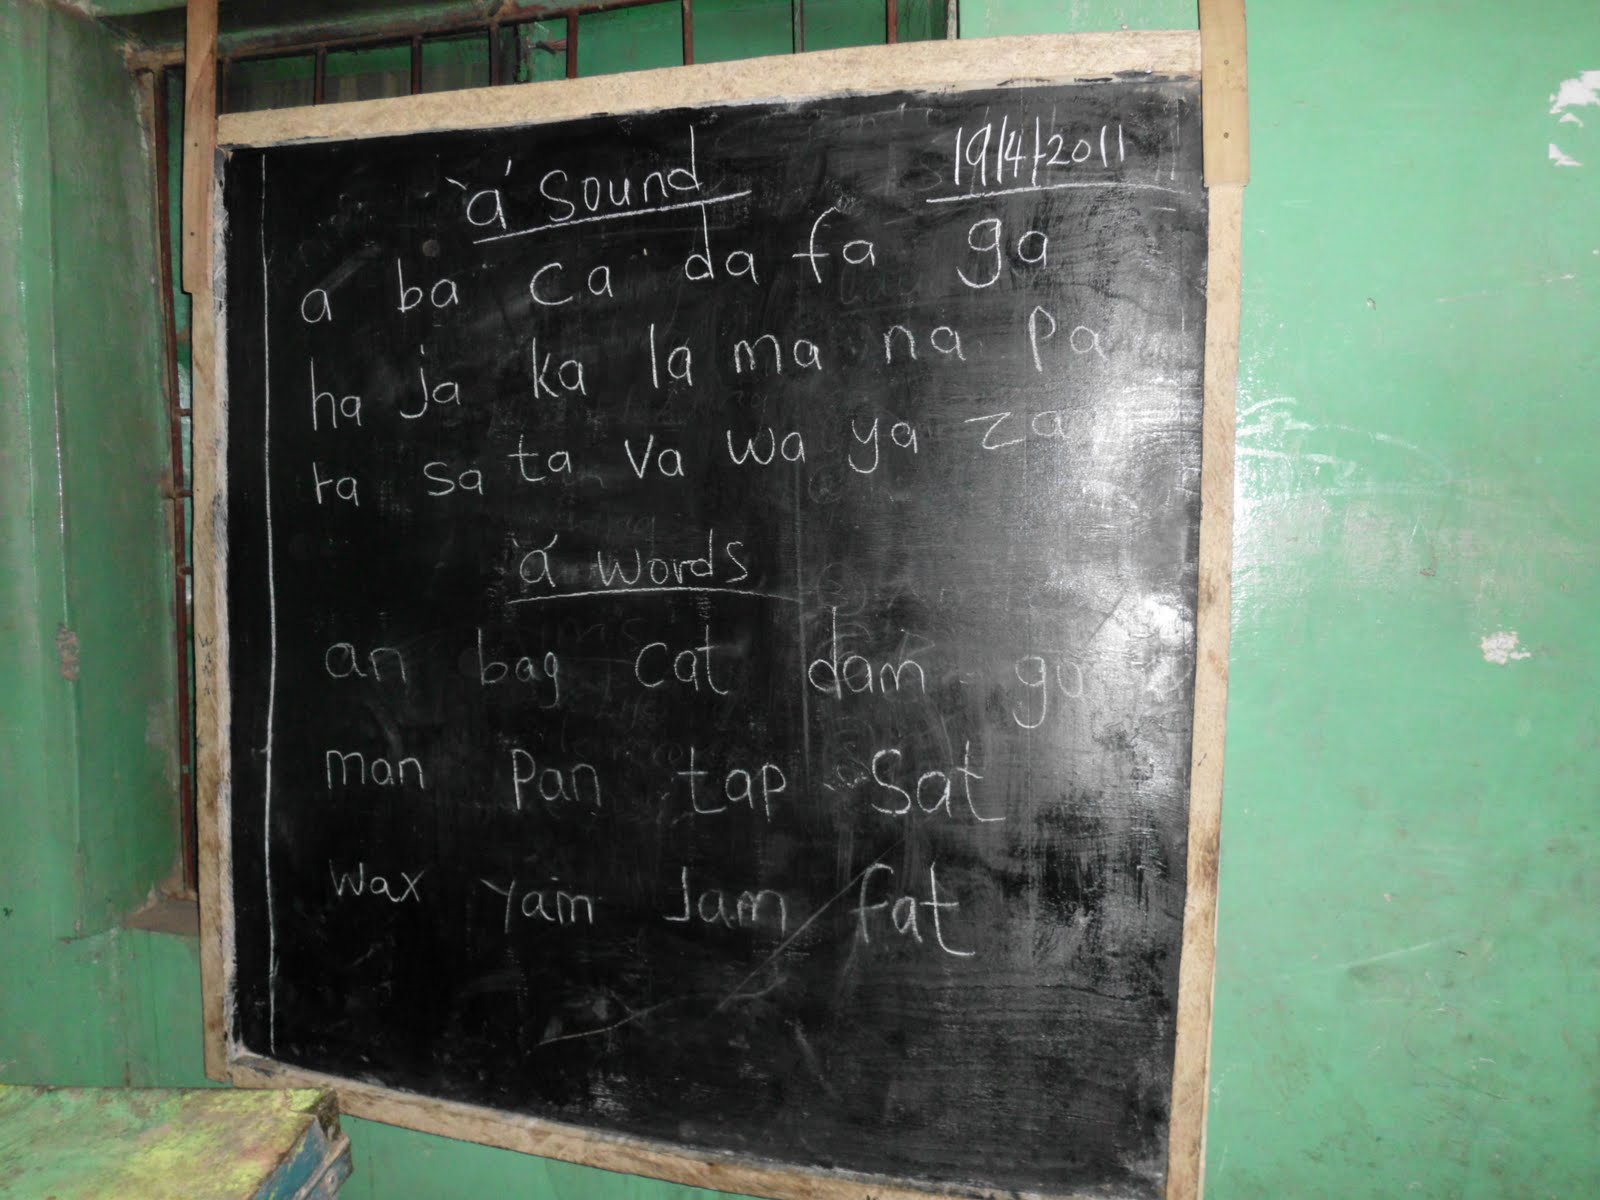 'a' Sound 19/4/2011
a ba ca da fa ga
ha ja ka la ma na pa
ra sa ta va wa ya za
'a' words
an bag cat dam
man pan tap sat
wax yam Jam fat